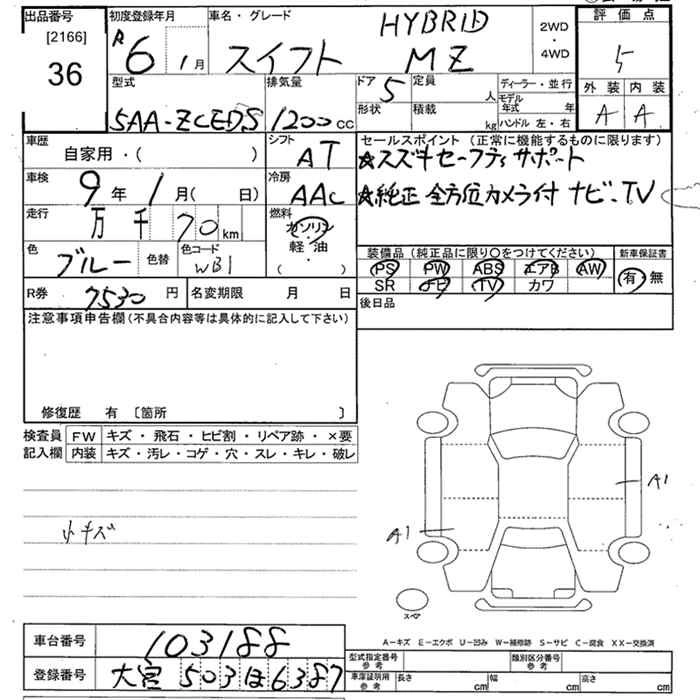 出品番号 初度登録年月 車名・グレード 評価点
[2166] R6年 1月 スイフト HYBRID MZ 2WD・4WD 5
36
型式 排気量 ドア 5 定員 人 ディーラー・並行 外装 内装
5AA-ZCEDS 1200cc 形状 積載 kg モデル年式 年 A A
ハンドル 左・右
車歴 シフト セールスポイント（正常に機能するものに限ります）
自家用・（ ） AT ★スズキセーフティサポート
車検 冷房 ★純正 全方位カメラ付 ナビ、TV
9年 1月（ 日） AAC
走行 万 千 70 km 燃料 ガソリン・軽油・（ ）
色 ブルー 色替 色コード WB1
装備品（純正品に限り○をつけてください） 新車保証書
PS PW ABS エアB AW 有・無
SR ナビ TV カワ
R券 7530 円 名変期限 月 日 後日品
注意事項申告欄（不具合内容等は具体的に記入して下さい）
修復歴 有 〔箇所 〕
検査員 FW キズ・飛石・ヒビ割・リペア跡・×要
記入欄 内装 キズ・汚レ・コゲ・穴・スレ・キレ・破レ
A1
小キズ
A1
スペア
車台番号 103188
A－キズ E－エクボ U－凹み W－補修跡 S－サビ C－腐食 XX－交換済
登録番号 大宮 503 ほ 6387
型式指定番号 参考 類別区分番号 参考
車庫証明用 参考 長さ cm 幅 cm 高さ cm